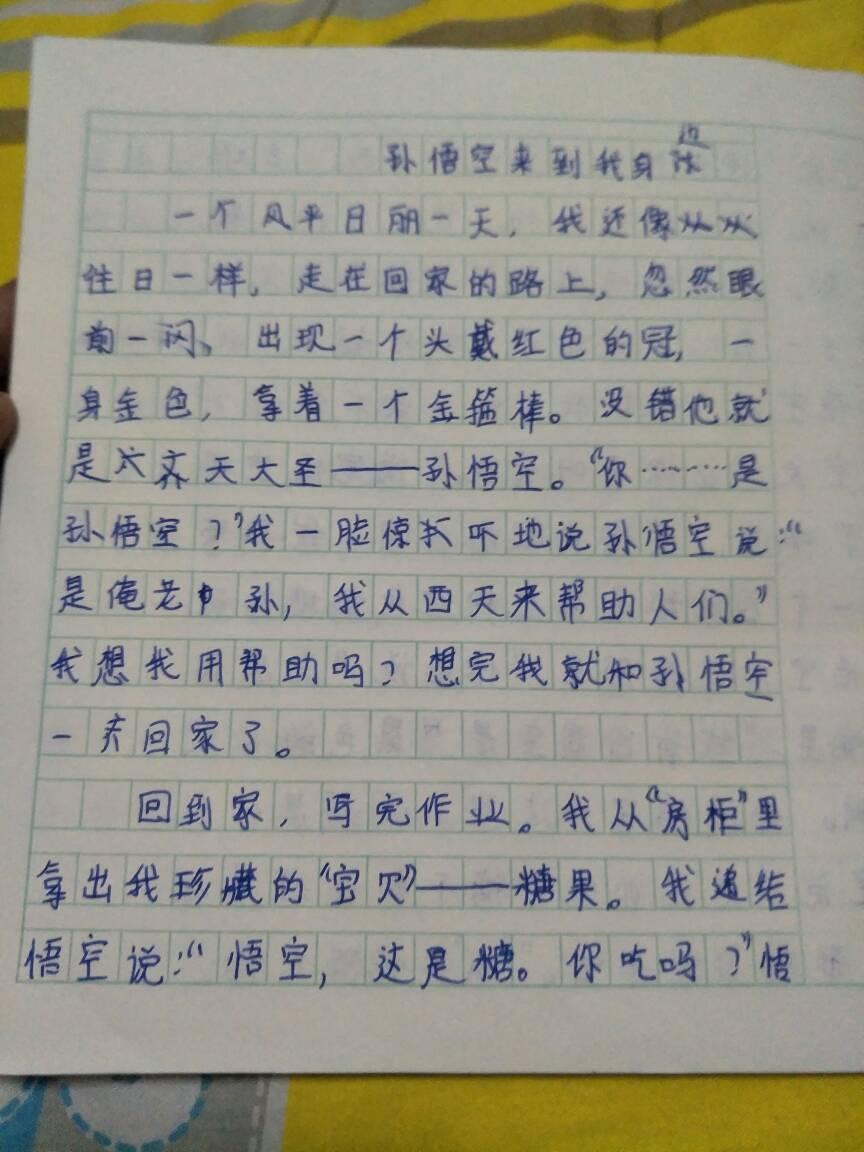 孙悟空来到我身边
一个风平日丽一天，我还像从从
往日一样，走在回家的路上，忽然眼
前一闪、出现一个头戴红色的冠，一
身金色，拿着一个金箍棒。没错他就
是齐天大圣——孙悟空。“你………是
孙悟空？”我一脸惊吓地说孙悟空说：“
是俺老孙，我从西天来帮助人们。”
我想我用帮助吗？想完我就和孙悟空
一齐回家了。
回到家，写完作业。我从“房柜”里
拿出我珍藏的“宝贝”——糖果。我递给
悟空说：“悟空，这是糖。你吃吗？”悟